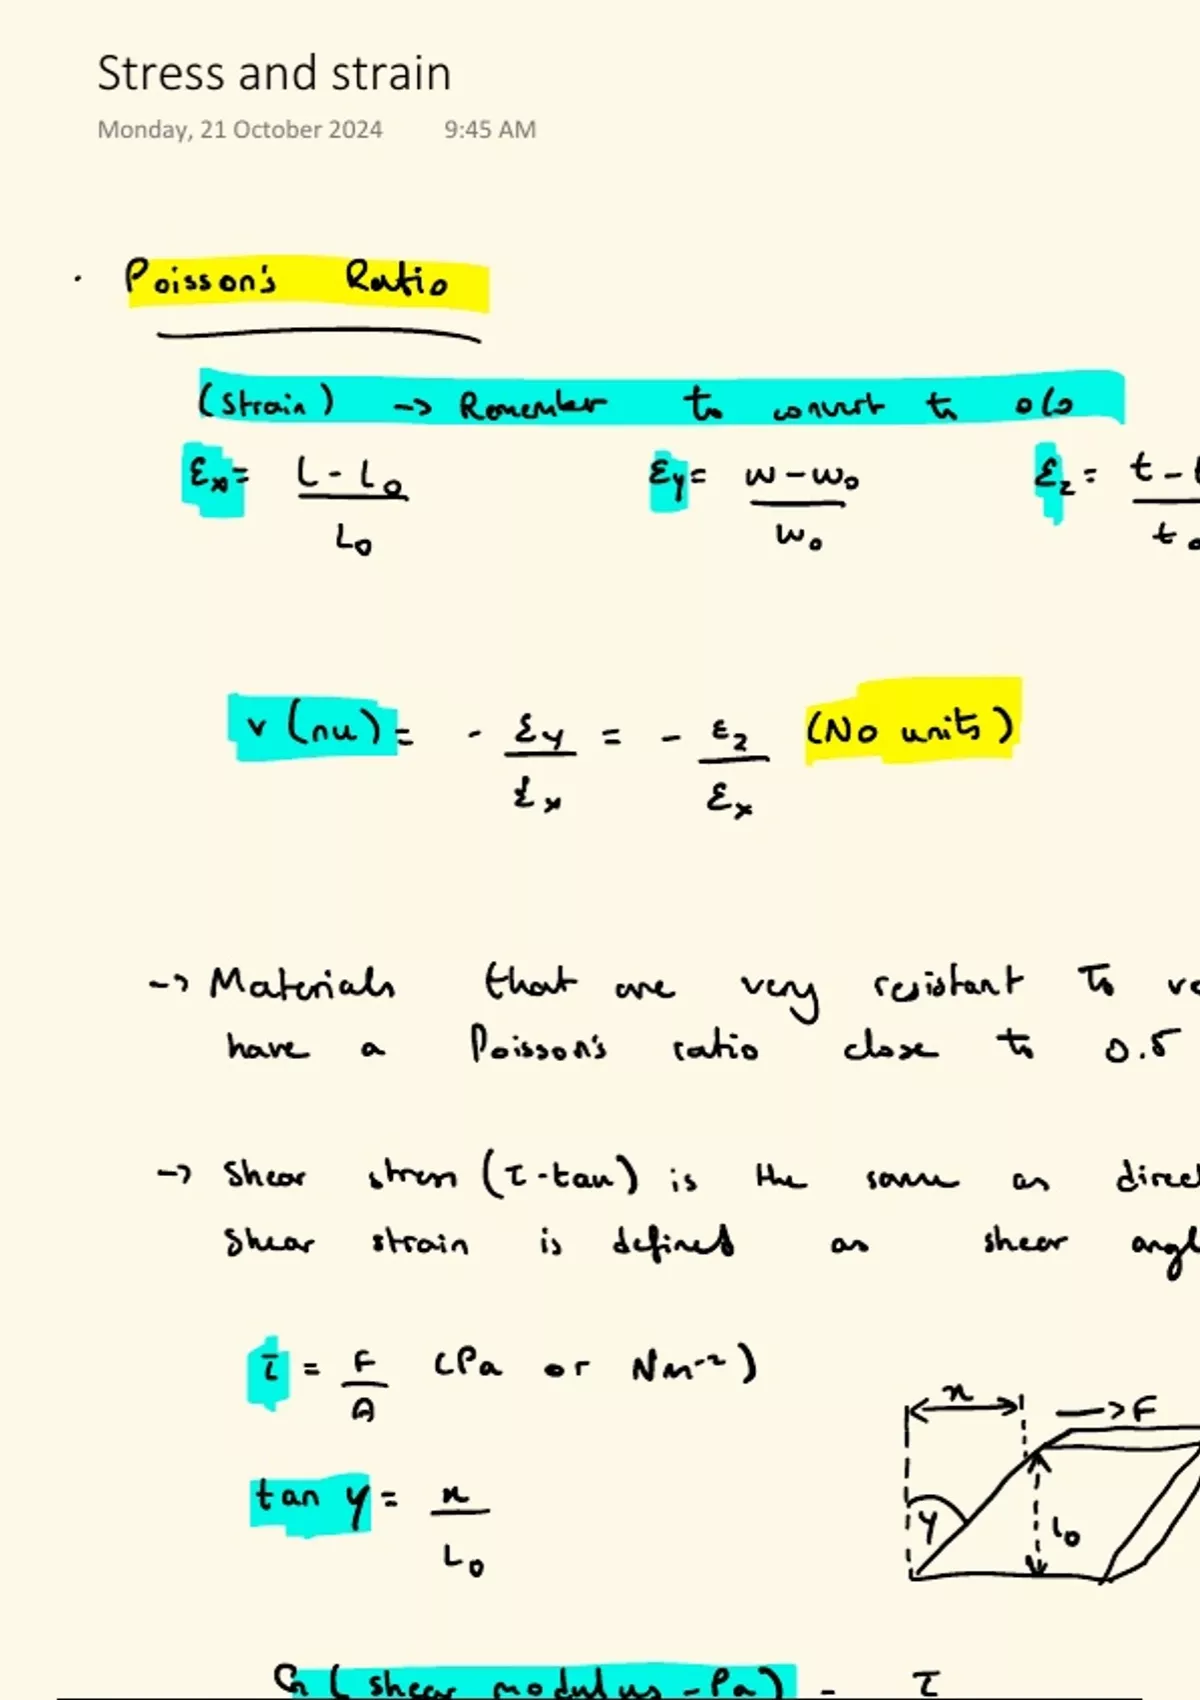 Stress and strain
Monday, 21 October 2024 9:45 AM
· Poisson's Ratio
(Strain) -> Remember to convert to o/o
εx = L - L0 / L0 εy = w - w0 / w0 εz = t - / t0
v (nu) = - εy / εx = - εz / εx (No units)
-> Materials that are very resistant to
have a Poisson's ratio close to 0.5
-> Shear stress (τ-tau) is the same as direct
Shear strain is defined as shear angl
τ = F / A (Pa or Nm⁻²)
x -> F
tan γ = x / L0
γ l0
G (shear modulus - Pa) = τ